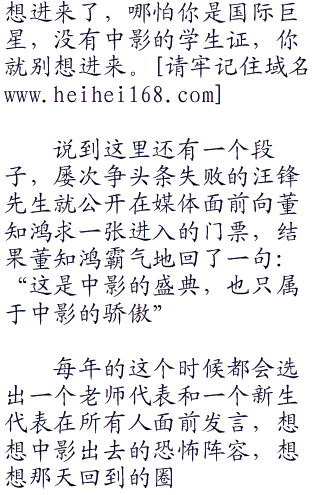 想进来了，哪怕你是国际巨
星，没有中影的学生证，你
就别想进来。[请牢记住域名
www.heihei168.com]
说到这里还有一个段
子，屡次争头条失败的汪锋
先生就公开在媒体面前向董
知鸿求一张进入的门票，结
果董知鸿霸气地回了一句：
“这是中影的盛典，也只属
于中影的骄傲”
每年的这个时候都会选
出一个老师代表和一个新生
代表在所有人面前发言，想
想中影出去的恐怖阵容，想
想那天回到的圈